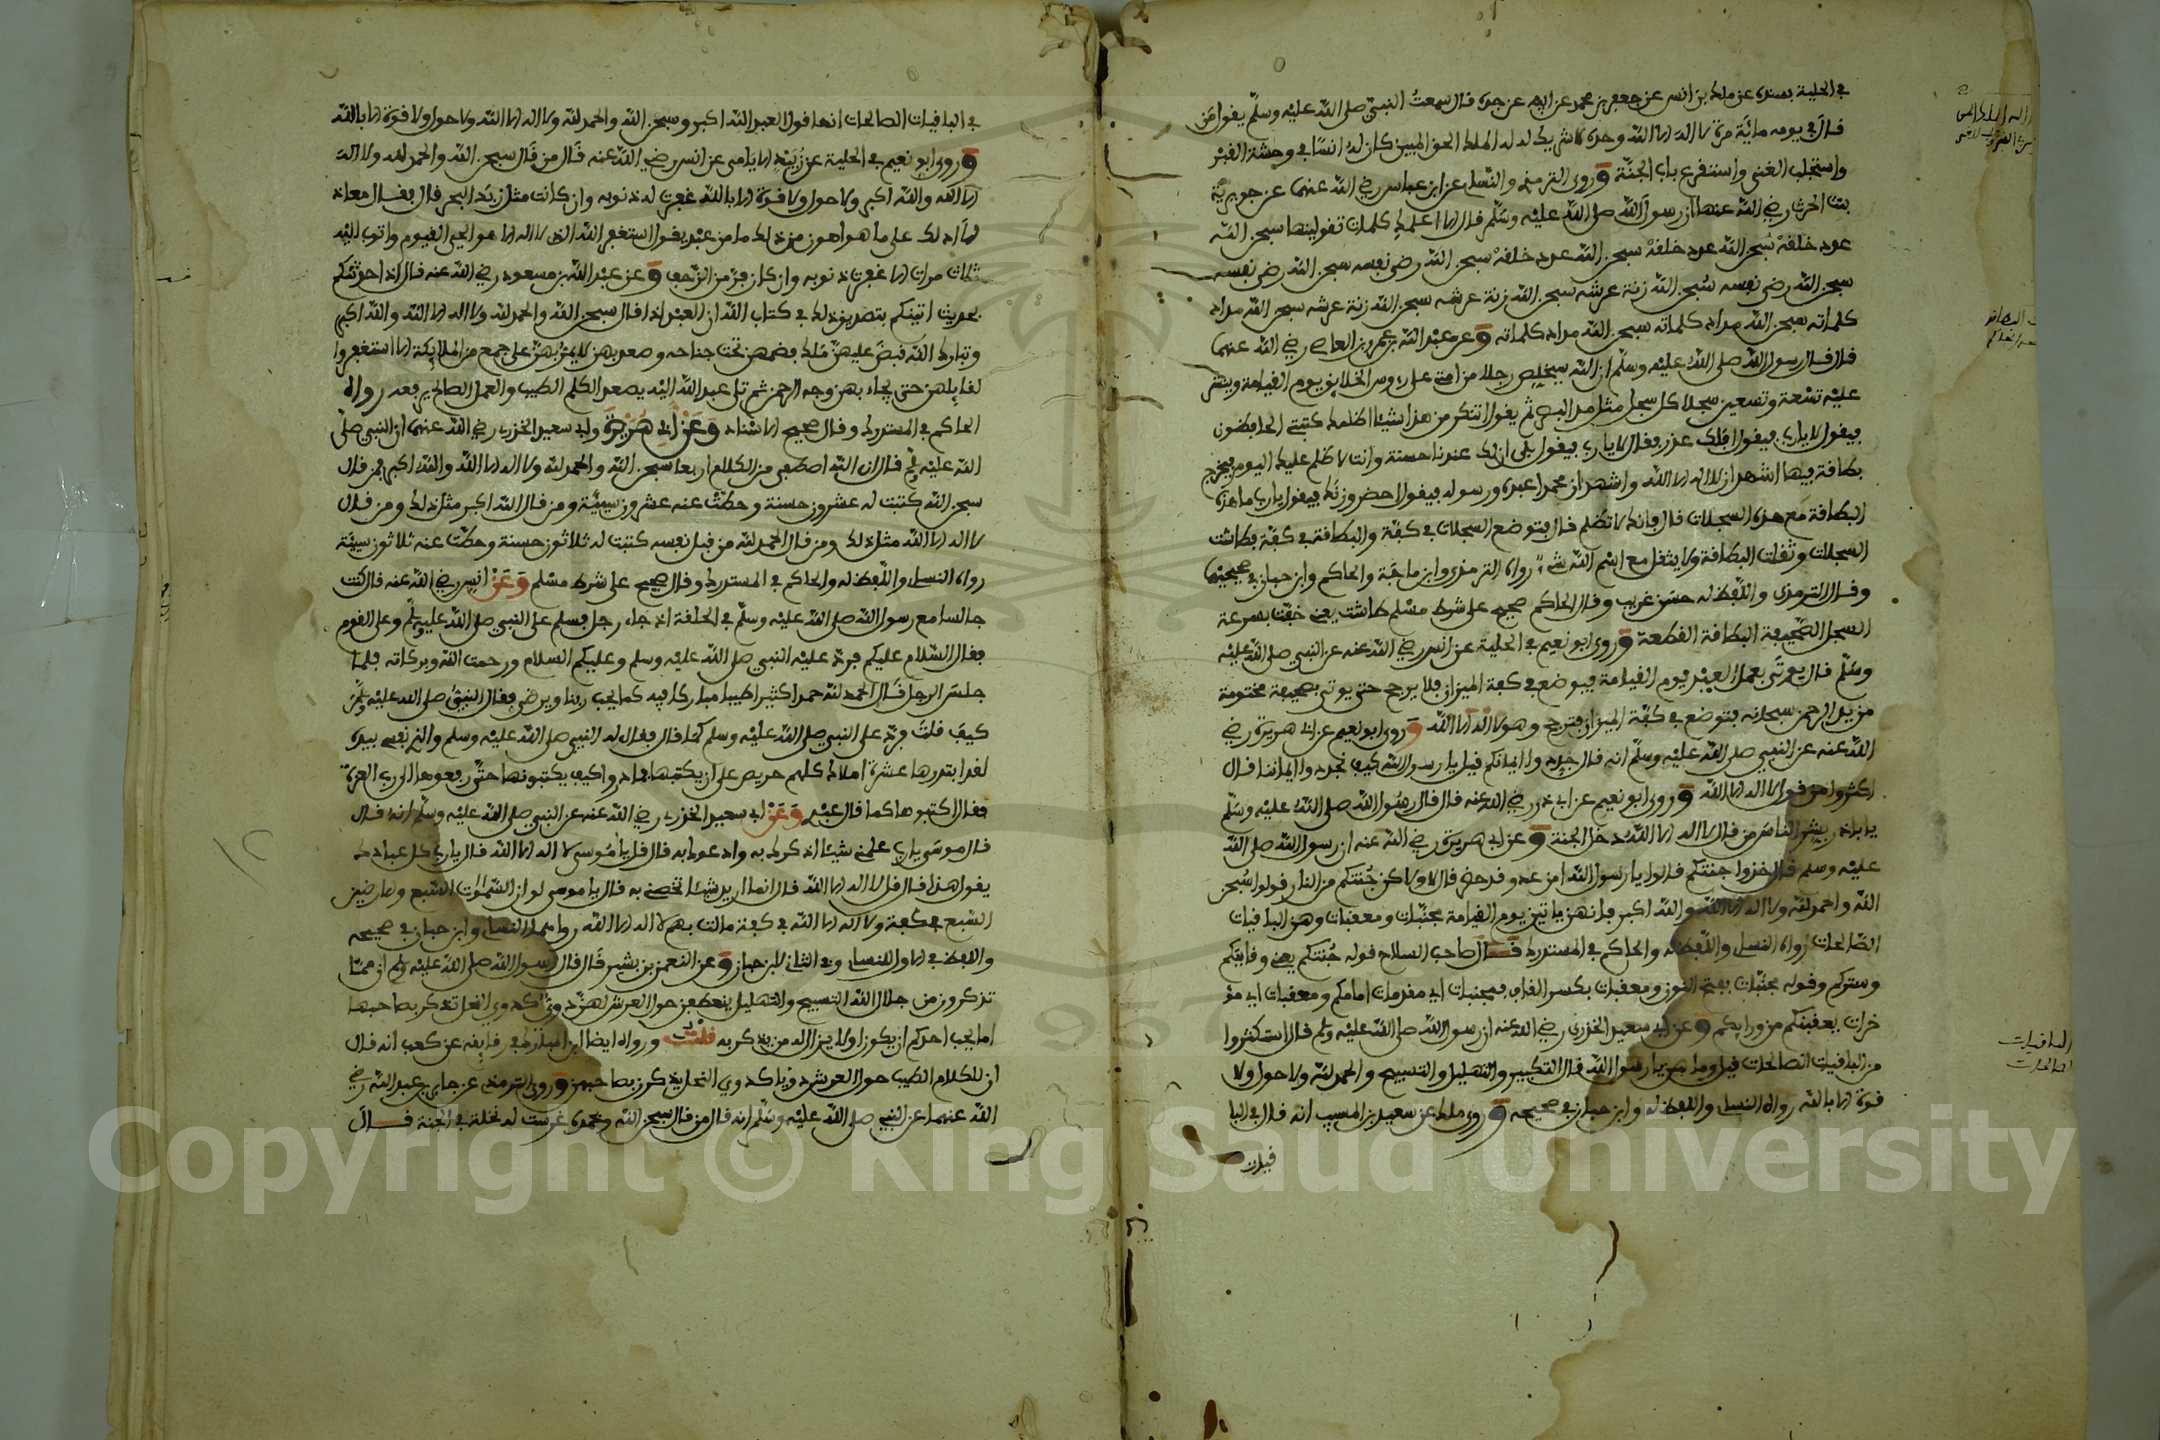 في الحلية بسنده عن ملك بن انس عن جعفر بن محمد عن ابيه عن جده قال سمعت النبي صلى الله عليه وسلم يقول من
قال في يومه مائة مرة لا اله الا الله وحده لا شريك له له الملك الحق المبين كان له انسا في وحشة القبر
واستجلب الغنى واستقرع باب الجنة وروى الترمذي والنسائي عن ابن عباس رضي الله عنهما عن جويرية
بنت الحرث رضي الله عنها ان رسول الله صلى الله عليه وسلم قال الا اعلمك كلمات تقولينها سبحن الله
عدد خلقه سبحن الله عدد خلقه سبحن الله عدد خلقه سبحن الله رضى نفسه سبحن الله رضى نفسه
سبحن الله رضى نفسه سبحن الله زنة عرشه سبحن الله زنة عرشه سبحن الله زنة عرشه سبحن الله مداد
كلماته سبحن الله مداد كلماته سبحن الله مداد كلماته وعن عبد الله بن عمرو بن العاصي رضي الله عنهما
قال قال رسول الله صلى الله عليه وسلم ان الله سيخلص رجلا من امتي على رءوس الخلايق يوم القيامة وينشر
عليه تسعة وتسعين سجلا كل سجل مثل مد البصر ثم يقول اتنكر من هذا شيئا اظلمك كتبتي الحافظون
فيقول لا يارب فيقول افلك عذر فقال لا يارب فيقول بلى ان لك عندنا حسنة وانه لا ظلم عليك اليوم فيخرج
بطاقة فيها اشهد ان لا اله الا الله واشهد ان محمدا عبده ورسوله فيقول احضر وزنك فيقول يارب ما هذه
البطاقة مع هذه السجلات قال فانك لا تظلم قال فتوضع السجلات في كفة والبطاقة في كفة فطاشت
السجلات وثقلت البطاقة ولا يثقل مع اسم الله شيء رواه الترمذي وابن ماجة والحاكم وابن حبان في صحيحيهما
وقال الترمذي واللفظ له حسن غريب وقال الحاكم صحيح على شرط مسلم طاشت يعني خفت بسرعة
السجل الصحيفة البطاقة القطعة وروى ابو نعيم في الحلية عن انس رضي الله عنه عن النبي صلى الله عليه
وسلم قال يوتى بعمل العبد يوم القيامة فيوضع في كفة الميزان فلا يرجح حتى يوتى بصحيفة مختومة
من يد الرحمن سبحانه فتوضع في كفة الميزان فترجح وهو لا اله الا الله وروى ابو نعيم عن ابي هريرة رضي
الله عنه عن النبي صلى الله عليه وسلم انه قال جددوا ايمانكم قيل يا رسول الله كيف نجدد ايماننا قال
اكثروا من قول لا اله الا الله وروى ابو نعيم عن ابي ذر رضي الله عنه قال قال رسول الله صلى الله عليه وسلم
يا باذر بشر الناس من قال لا اله الا الله دخل الجنة وعن ابي هريرة رضي الله عنه ان رسول الله صلى الله
عليه وسلم قال خذوا جنتكم قالوا يا رسول الله امن عدو قد حضر قال لا ولاكن جنتكم من النار قولوا سبحن
الله والحمد لله ولا اله الا الله والله اكبر فانهن ياتين يوم القيامة مجنبات ومعقبات وهن الباقيات
الصالحات رواه النسائي واللفظ له والحاكم في المستدرك قال صاحب السلاح قوله جنتكم يعني وقايتكم
وستركم وقوله مجنبات بفتح النون ومعقبات بكسر القاف فمجنبات اي مقدمات امامكم ومعقبات اي مؤ
خرات يعقبنكم من ورايكم وعن ابي سعيد الخدري رضي الله عنه ان رسول الله صلى الله عليه وسلم قال استكثروا
من الباقيات الصالحات قيل وما هن يا رسول الله قال التكبير والتهليل والتسبيح والحمد لله ولا حول ولا
قوة الا بالله رواه النسائي واللفظ له وابن حبان في صحيحه وروى ملك عن سعيد بن المسيب انه قال في البا
قيات
الباقيات
الصالحات
في الباقيات الصالحات انها قول العبد الله اكبر وسبحن الله والحمد لله ولا اله الا الله ولا حول ولا قوة الا بالله
وروى ابو نعيم في الحلية عن زبيد الايامي عن انس رضي الله عنه قال من قال سبحن الله والحمد لله ولا اله
الا الله والله اكبر ولا حول ولا قوة الا بالله غفرت له ذنوبه وان كانت مثل زبد البحر فقال معاذ
الا ادلك على ما هو اهون من ذلك ما من عبد يقول استغفر الله الذي لا اله الا هو الحي القيوم واتوب اليه
ثلاث مرات الا غفرت ذنوبه وان كان فر من الزحف وعن عبد الله بن مسعود رضي الله عنه قال اذا حدثتكم
بحديث اتيتكم بتصديق ذلك في كتاب الله ان العبد اذا قال سبحن الله والحمد لله ولا اله الا الله والله اكبر
وتبارك الله قبض عليهن ملك فضمهن تحت جناحه وصعد بهن لا يمر بهن على جمع من الملايكة الا استغفروا
لقايلهن حتى يجاء بهن وجه الرحمن ثم تلى عبد الله اليه يصعد الكلم الطيب والعمل الصالح يرفعه رواه
الحاكم في المستدرك وقال صحيح الاسناد وعن ابي هريرة وابي سعيد الخدري رضي الله عنهما ان النبي صلى
الله عليه وسلم قال ان الله اصطفى من الكلام اربعا سبحن الله والحمد لله ولا اله الا الله والله اكبر فمن قال
سبحن الله كتبت له عشرون حسنة وحطت عنه عشرون سيئة ومن قال الله اكبر مثل ذلك ومن قال
لا اله الا الله مثل ذلك ومن قال الحمد لله من قبل نفسه كتبت له ثلاثون حسنة وحطت عنه ثلاثون سيئة
رواه النسائي واللفظ له والحاكم في المستدرك وقال صحيح على شرط مسلم وعن انس رضي الله عنه قال كنت
جالسا مع رسول الله صلى الله عليه وسلم في الحلقة اذ جاء رجل فسلم على النبي صلى الله عليه وسلم وعلى القوم
فقال السلام عليكم فرد عليه النبي صلى الله عليه وسلم وعليكم السلام ورحمت الله وبركاته فلما
جلس الرجل قال الحمد لله حمدا كثيرا طيبا مباركا فيه كما يحب ربنا ويرضى فقال النبي صلى الله عليه وسلم
كيف قلت فرد على النبي صلى الله عليه وسلم كما قال فقال له النبي صلى الله عليه وسلم والذي نفسي بيده
لقد ابتدرها عشرة املاك كلهم حريص على ان يكتبها فما دروا كيف يكتبونها حتى رفعوها الى رب العزة
فقال اكتبوها كما قال عبدي وعن ابي سعيد الخدري رضي الله عنه عن النبي صلى الله عليه وسلم انه قال
قال موسى يارب علمني شيئا اذكرك به وادعوك به قال قل يا موسى لا اله الا الله قال يارب كل عبادك
يقول هذا قال قل لا اله الا الله قال انما اريد شيئا تخصني به قال يا موسى لو ان السموات السبع والارضين
السبع في كفة ولا اله الا الله في كفة مالت بهم لا اله الا الله رواهما النسائي وابن حبان في صحيحه
واللفظ في الاول للنسائي وفي الثاني لابن حبان وعن النعمن بن بشير قال قال رسول الله صلى الله عليه وسلم ان مما
تذكرون من جلال الله التسبيح والتهليل ينعطفن حول العرش لهن دوي كدوي النحل تذكر بصاحبها
اما يحب احدكم ان يكون او لا يزال له من يذكر به قلت ورواه ايضا ابن المبارك في رقايقه عن كعب انه قال
ان للكلام الطيب حول العرش دويا كدوي النحل يذكرن بصاحبهن وروى الترمذي عن جابر بن عبد الله رضي
الله عنهما عن النبي صلى الله عليه وسلم انه قال من قال سبحن الله وبحمده غرست له نخلة في الجنة قال
Copyright © King Saud University